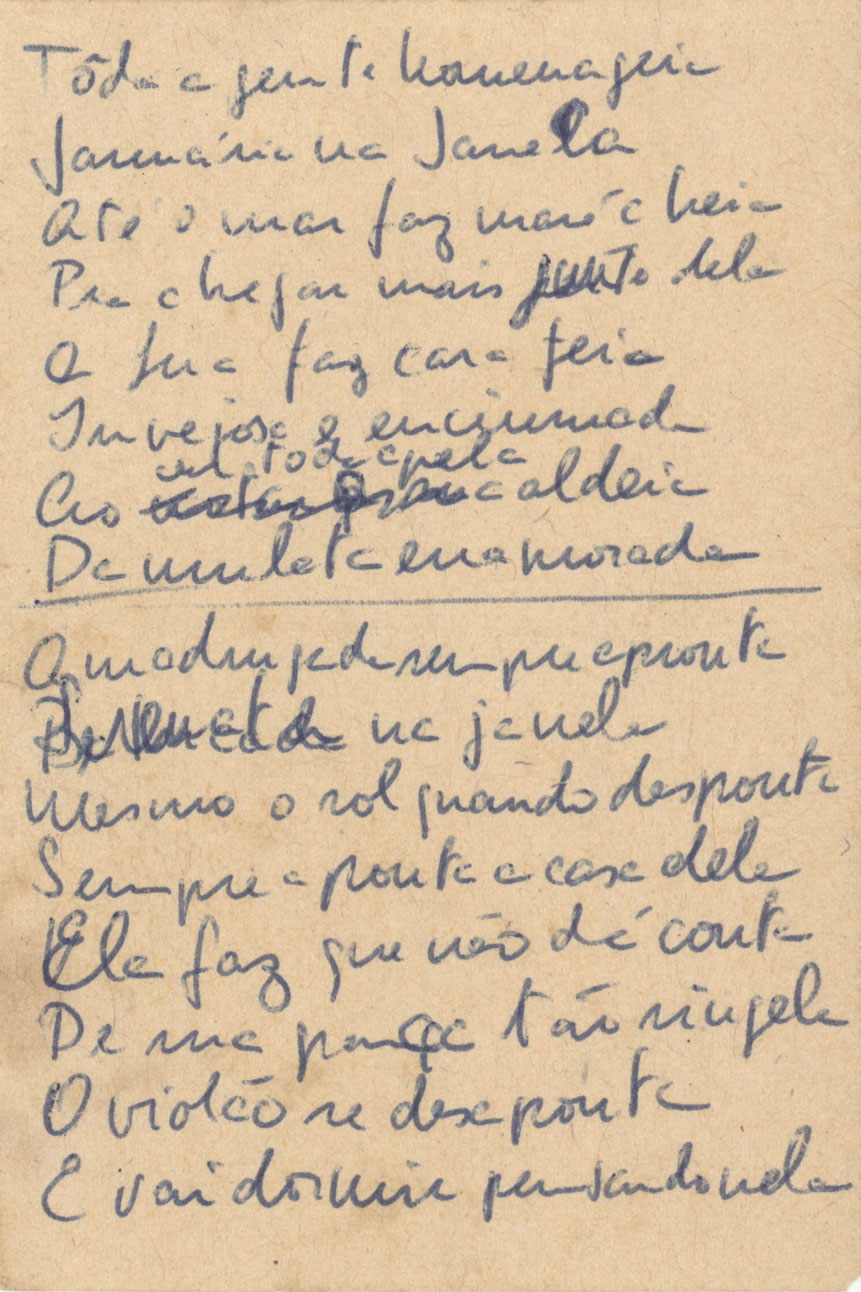 Tôda a gente homenageia
Januária na Janela
Até o mar faz maré cheia
Pra chegar mais junto dela
A lua faz cara feia
Invejosa e enciumada
toda
Ao aldeia
Da mulata enamorada
A madrugada sempre apronta
Serenata na janela
Mesmo o sol quando desponta
Sempre aponta a casa dela
Ela faz que não dá conta
De sua graça tão singela
O violão se desaponta
E vai dormir pensando nela